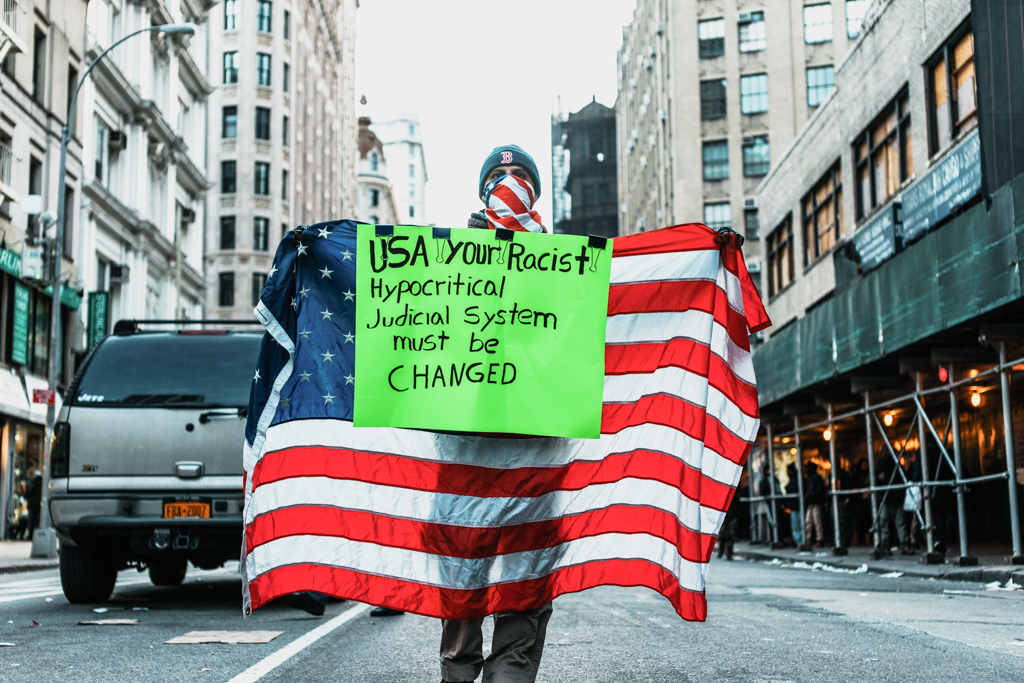 B
USA your Racist
Hypocritical
Judicial System
must be
CHANGED
FRA-2007